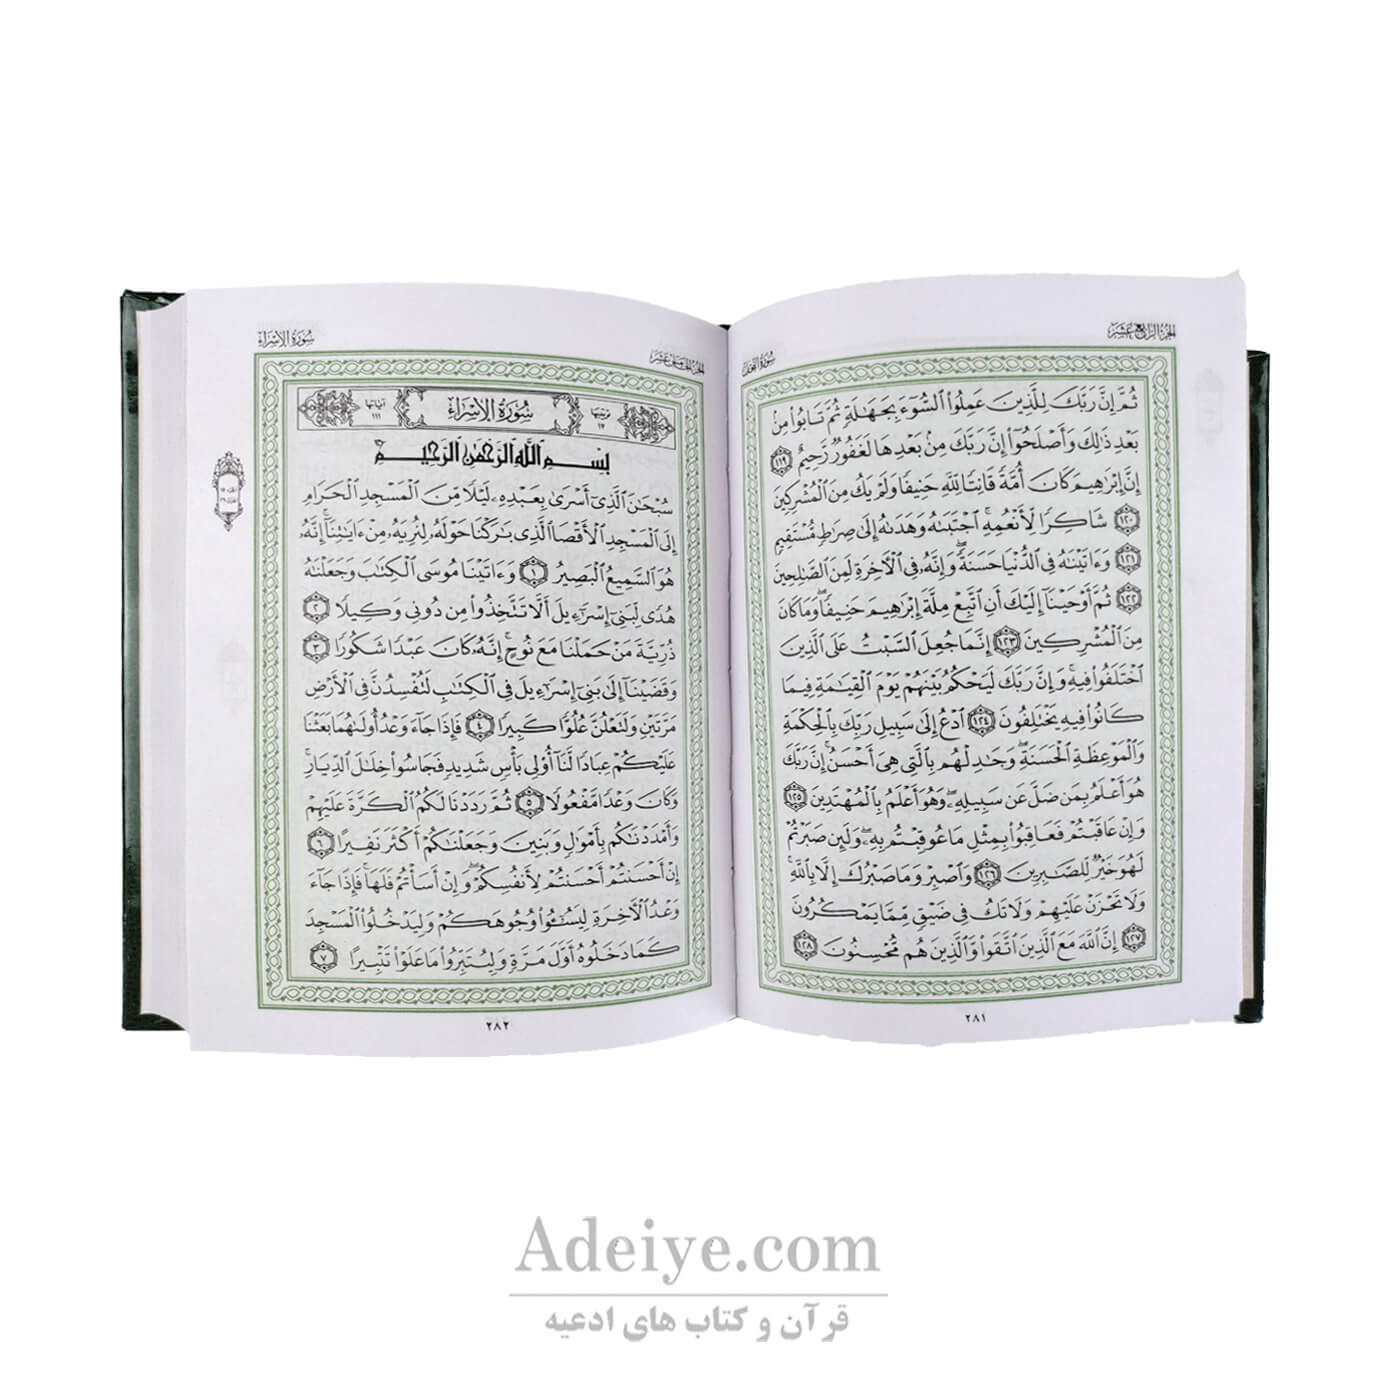 الجزء الرابع عشر
سورة النحل
ثُمَّ إِنَّ رَبَّكَ لِلَّذِينَ عَمِلُوا۟ ٱلسُّوٓءَ بِجَهَٰلَةٍ ثُمَّ تَابُوا۟ مِنۢ
بَعْدِ ذَٰلِكَ وَأَصْلَحُوٓا۟ إِنَّ رَبَّكَ مِنۢ بَعْدِهَا لَغَفُورٌ رَّحِيمٌ ١١٩
إِنَّ إِبْرَٰهِيمَ كَانَ أُمَّةً قَانِتًا لِّلَّهِ حَنِيفًا وَلَمْ يَكُ مِنَ ٱلْمُشْرِكِينَ
١٢٠ شَاكِرًا لِّأَنْعُمِهِ ۚ ٱجْتَبَىٰهُ وَهَدَىٰهُ إِلَىٰ صِرَٰطٍ مُّسْتَقِيمٍ
١٢١ وَءَاتَيْنَٰهُ فِى ٱلدُّنْيَا حَسَنَةً ۖ وَإِنَّهُۥ فِى ٱلْءَاخِرَةِ لَمِنَ ٱلصَّٰلِحِينَ
١٢٢ ثُمَّ أَوْحَيْنَآ إِلَيْكَ أَنِ ٱتَّبِعْ مِلَّةَ إِبْرَٰهِيمَ حَنِيفًا ۖ وَمَا كَانَ
مِنَ ٱلْمُشْرِكِينَ ١٢٣ إِنَّمَا جُعِلَ ٱلسَّبْتُ عَلَى ٱلَّذِينَ
ٱخْتَلَفُوا۟ فِيهِ ۚ وَإِنَّ رَبَّكَ لَيَحْكُمُ بَيْنَهُمْ يَوْمَ ٱلْقِيَٰمَةِ فِيمَا
كَانُوا۟ فِيهِ يَخْتَلِفُونَ ١٢٤ ٱدْعُ إِلَىٰ سَبِيلِ رَبِّكَ بِٱلْحِكْمَةِ
وَٱلْمَوْعِظَةِ ٱلْحَسَنَةِ ۖ وَجَٰدِلْهُم بِٱلَّتِى هِىَ أَحْسَنُ ۚ إِنَّ رَبَّكَ
هُوَ أَعْلَمُ بِمَن ضَلَّ عَن سَبِيلِهِۦ ۖ وَهُوَ أَعْلَمُ بِٱلْمُهْتَدِينَ ١٢٥
وَإِنْ عَاقَبْتُمْ فَعَاقِبُوا۟ بِمِثْلِ مَا عُوقِبْتُم بِهِۦ ۖ وَلَئِن صَبَرْتُمْ
لَهُوَ خَيْرٌ لِّلصَّٰبِرِينَ ١٢٦ وَٱصْبِرْ وَمَا صَبْرُكَ إِلَّا بِٱللَّهِ ۚ
وَلَا تَحْزَنْ عَلَيْهِمْ وَلَا تَكُ فِى ضَيْقٍ مِّمَّا يَمْكُرُونَ
١٢٧ إِنَّ ٱللَّهَ مَعَ ٱلَّذِينَ ٱتَّقَوا۟ وَّٱلَّذِينَ هُم مُّحْسِنُونَ ١٢٨
٢٨١
الجزء الخامس عشر
سورة الإسراء
ترتيبها ١٧
سُورَةُ الإِسْرَاءِ
آياتها ١١١
بِسْمِ ٱللَّهِ ٱلرَّحْمَٰنِ ٱلرَّحِيمِ
سُبْحَٰنَ ٱلَّذِىٓ أَسْرَىٰ بِعَبْدِهِۦ لَيْلًا مِّنَ ٱلْمَسْجِدِ ٱلْحَرَامِ
إِلَى ٱلْمَسْجِدِ ٱلْأَقْصَا ٱلَّذِى بَٰرَكْنَا حَوْلَهُۥ لِنُرِيَهُۥ مِنْ ءَايَٰتِنَآ ۚ إِنَّهُۥ
هُوَ ٱلسَّمِيعُ ٱلْبَصِيرُ ١ وَءَاتَيْنَا مُوسَى ٱلْكِتَٰبَ وَجَعَلْنَٰهُ
هُدًى لِّبَنِىٓ إِسْرَٰٓءِيلَ أَلَّا تَتَّخِذُوا۟ مِن دُونِى وَكِيلًا ٢
ذُرِّيَّةَ مَنْ حَمَلْنَا مَعَ نُوحٍ ۚ إِنَّهُۥ كَانَ عَبْدًا شَكُورًا ٣
وَقَضَيْنَآ إِلَىٰ بَنِىٓ إِسْرَٰٓءِيلَ فِى ٱلْكِتَٰبِ لَتُفْسِدُنَّ فِى ٱلْأَرْضِ
مَرَّتَيْنِ وَلَتَعْلُنَّ عُلُوًّا كَبِيرًا ٤ فَإِذَا جَآءَ وَعْدُ أُولَىٰهُمَا بَعَثْنَا
عَلَيْكُمْ عِبَادًا لَّنَآ أُو۟لِى بَأْسٍ شَدِيدٍ فَجَاسُوا۟ خِلَٰلَ ٱلدِّيَارِ ۚ
وَكَانَ وَعْدًا مَّفْعُولًا ٥ ثُمَّ رَدَدْنَا لَكُمُ ٱلْكَرَّةَ عَلَيْهِمْ
وَأَمْدَدْنَٰكُم بِأَمْوَٰلٍ وَبَنِينَ وَجَعَلْنَٰكُمْ أَكْثَرَ نَفِيرًا ٦
إِنْ أَحْسَنتُمْ أَحْسَنتُمْ لِأَنفُسِكُمْ ۖ وَإِنْ أَسَأْتُمْ فَلَهَا ۚ فَإِذَا جَآءَ
وَعْدُ ٱلْءَاخِرَةِ لِيَسُۥٓـُٔوا۟ وُجُوهَكُمْ وَلِيَدْخُلُوا۟ ٱلْمَسْجِدَ
كَمَا دَخَلُوهُ أَوَّلَ مَرَّةٍ وَلِيُتَبِّرُوا۟ مَا عَلَوْا۟ تَتْبِيرًا ٧
٢٨٢
Adeiye.com
قرآن و کتاب های ادعیه